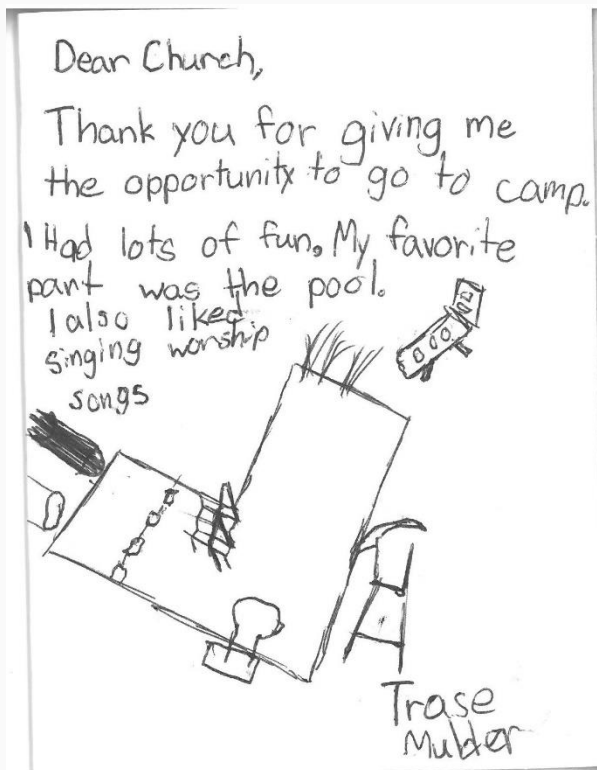 Dear Church,
Thank you for giving me
the opportunity to go to camp.
I Had lots of fun. My favorite
part was the pool.
I also liked
singing worship
songs
Trase
Mulder